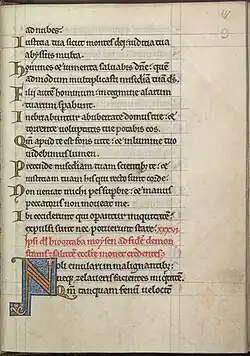 ad nubes.
Iustitia tua sicut montes dei: iuditia tua
abyssus multa.
Homines et iumenta saluabis dñe: que
admodum multiplicasti misc̄diā tuā ds̄.
Filii autē hominum: in tegmine alarum
tuarum spabunt.
Inebriabuntur ab ubertate domus tue: et
torrente uoluptatis tue potabis eos.
Qm̄ apud te est fons uite: et in lumine tuo
uidebimus lumen.
Pretende misc̄diam tuam scientib; te: et
iustitiam tuam his qui recto sunt corde.
Non ueniat michi pes supbie: et manus
peccatoris non moueat me.
Ibi ceciderunt qui operantur iniquitatē:
expulsi sunt nec potuerunt stare. XXXVI
Noli emulari in malignantib;:
neq; zelaueris facientes iniqtatē.
Qm̄ tanquam fenū uelociť